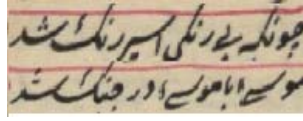 چونکه بی رنگی اسیر رنگ شد
موسے با موسے در جنگ شد